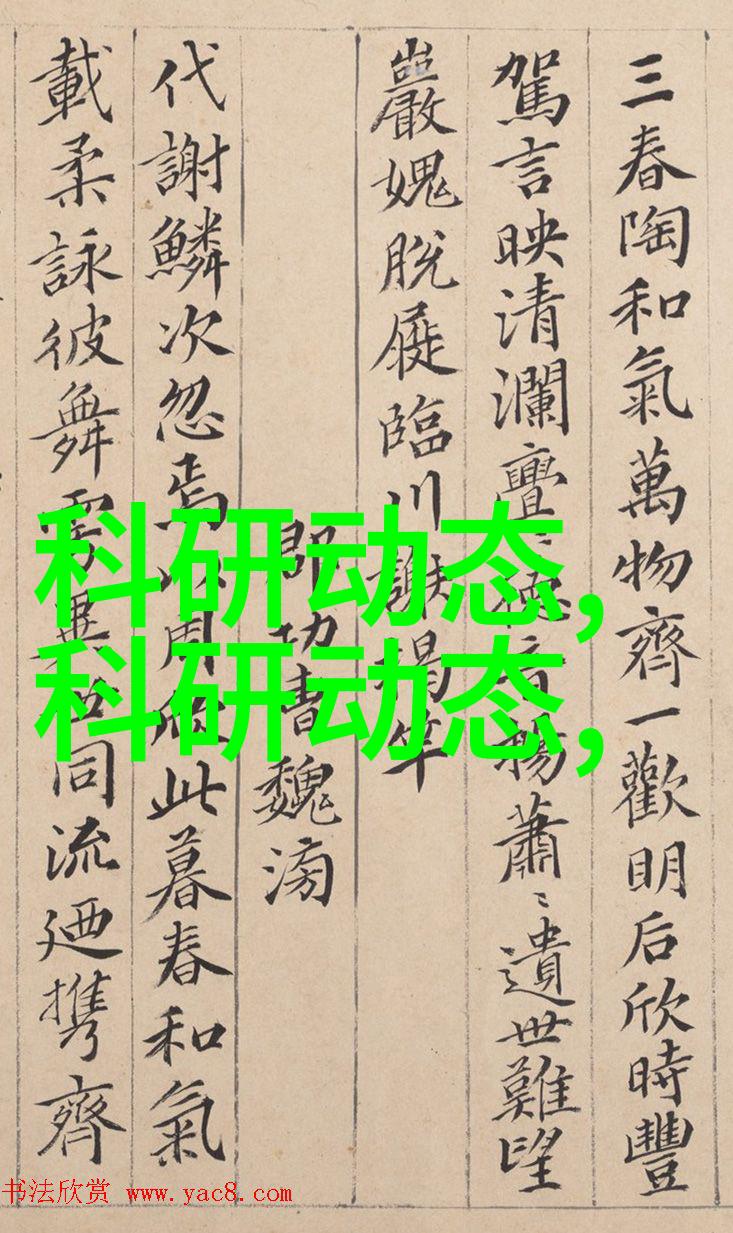 三春陶和氣萬物齊一歡明后欣時豐
駕言映清瀾亹〻德音暢蕭〻遺世難望
巖愧脫屣臨川謝揭竿
郡功曹魏滂
代謝鱗次忽焉以周欣此暮春和氣
載柔詠彼舞雩異世同流廼攜齊
科研动态,
科研动态,
书法欣赏 www.yac8.com